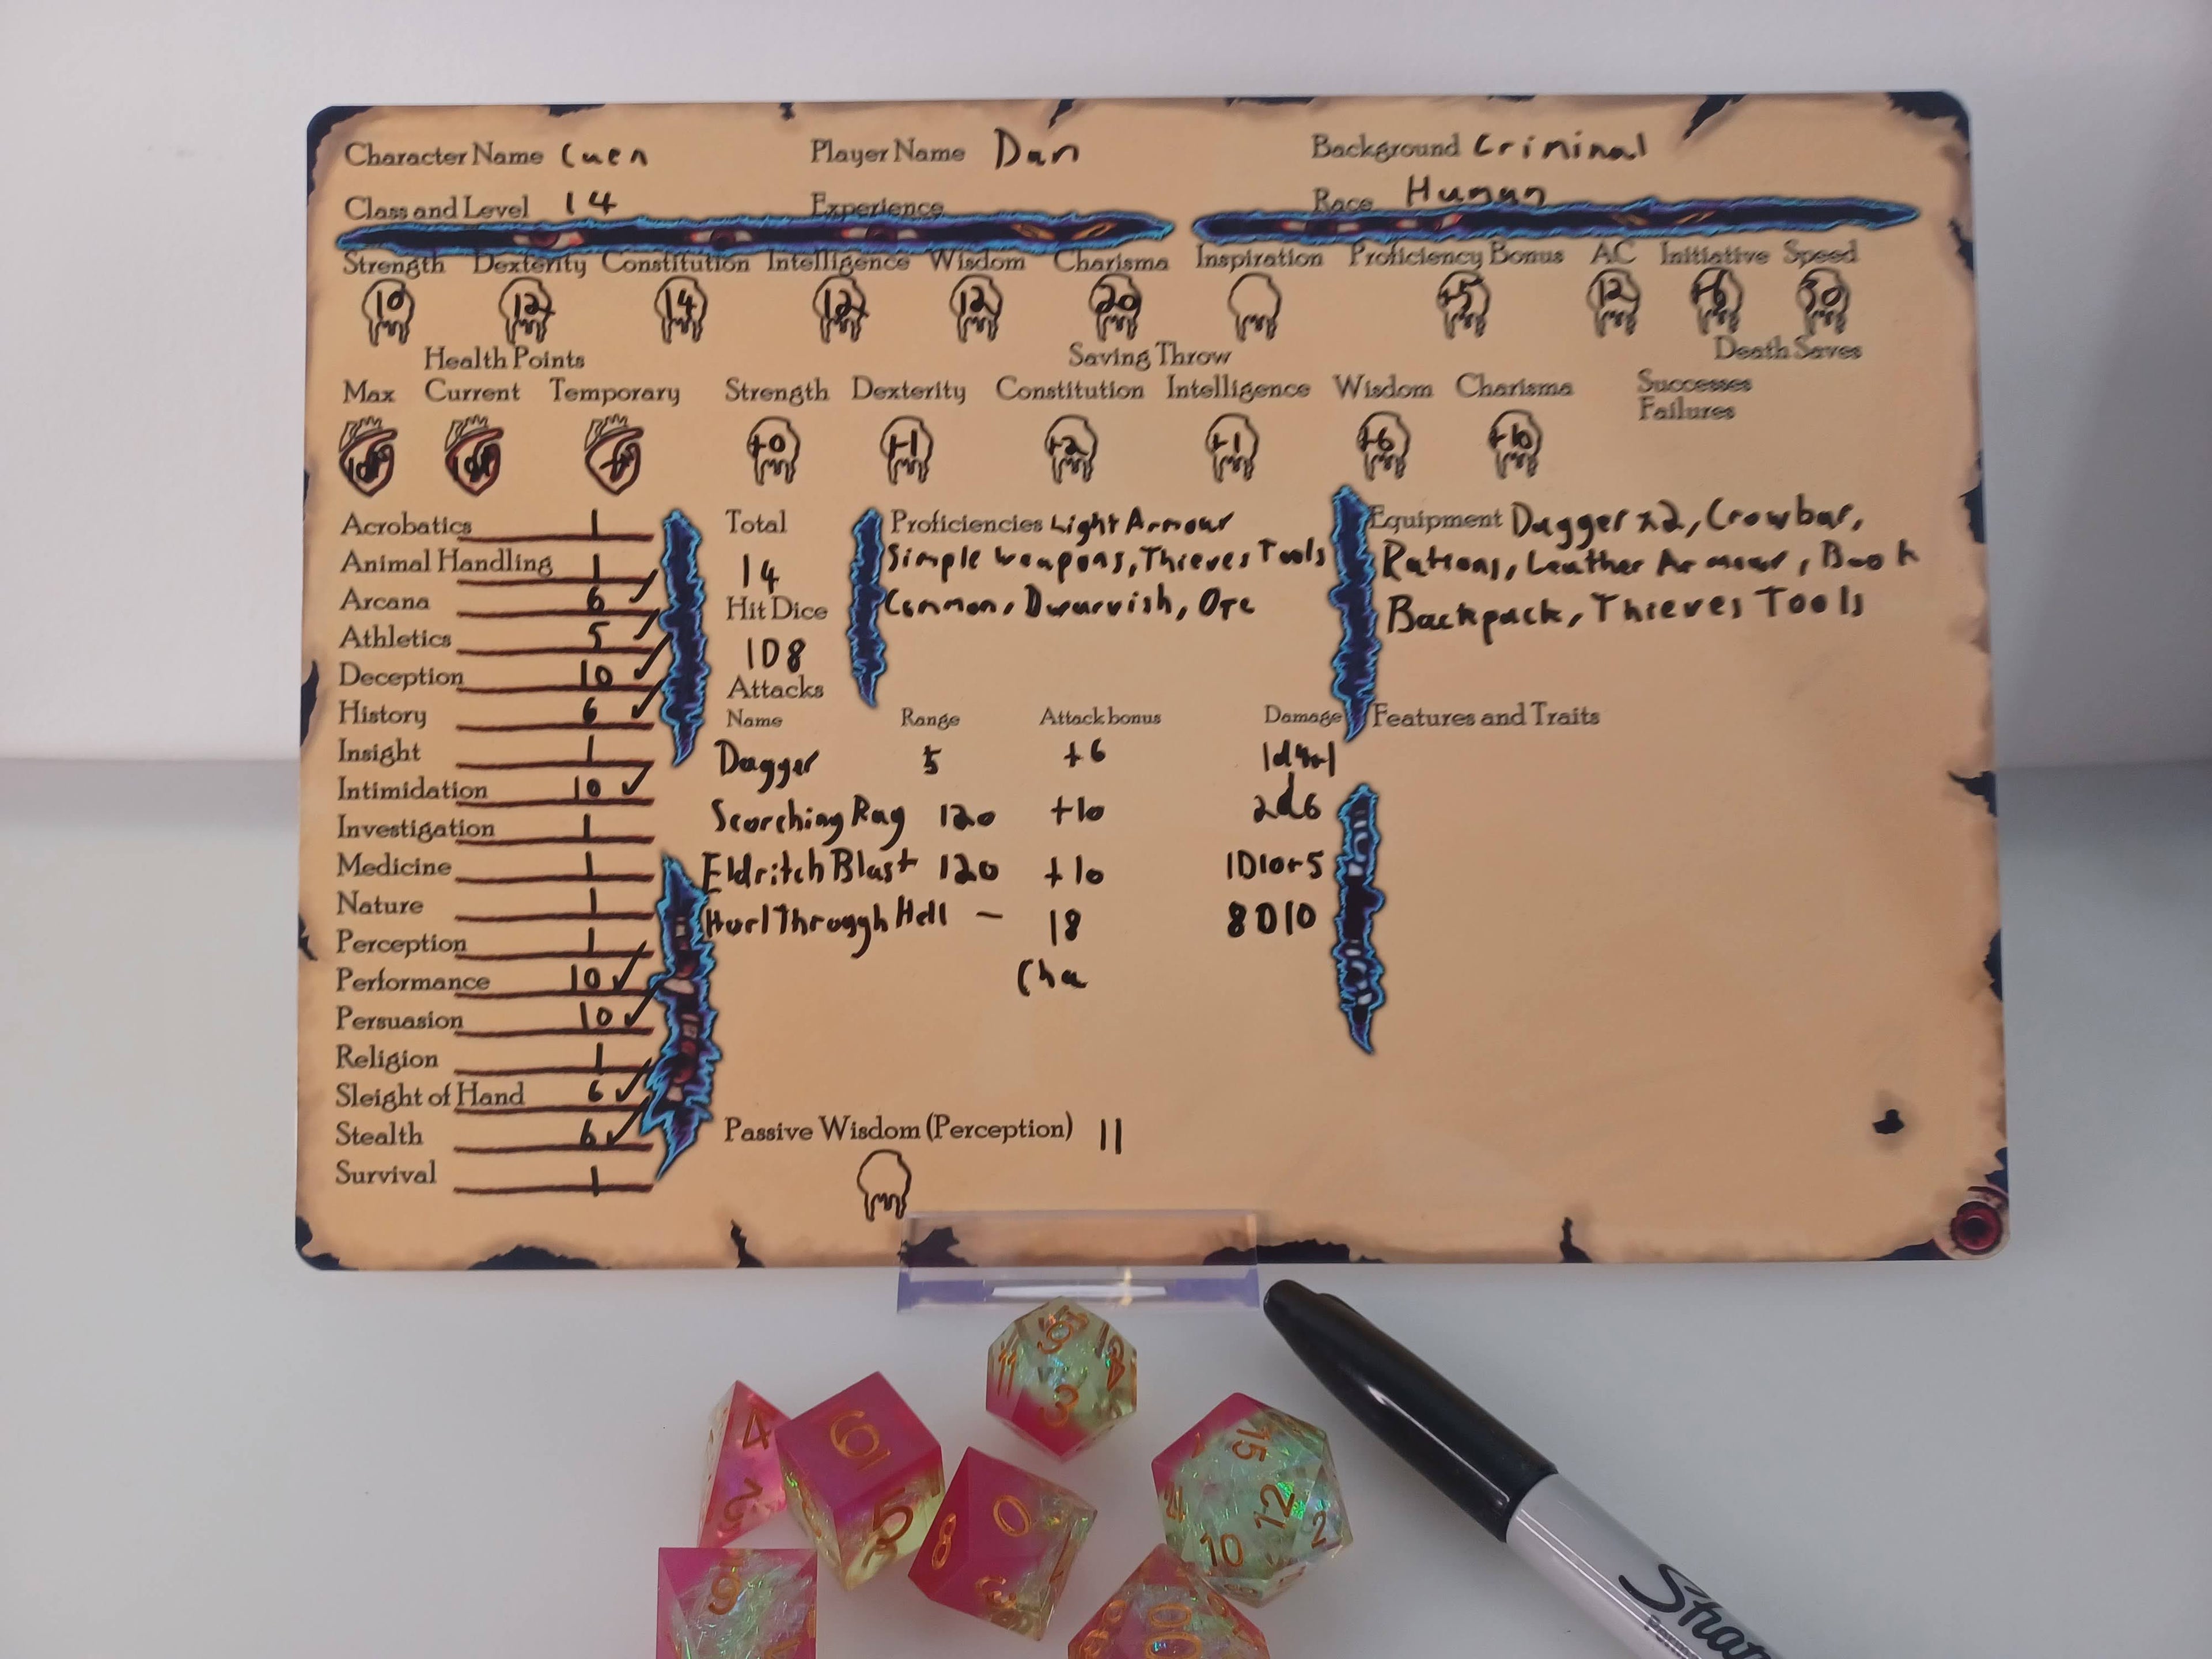 Character Name Cuen Player Name Dan Background Criminal
Class and Level 14 Experience Race Human
Strength Dexterity Constitution Intelligence Wisdom Charisma Inspiration Proficiency Bonus AC Initiative Speed
10 12 14 12 12 20 +5 12 +6 30
Health Points Saving Throw Death Saves
Max Current Temporary Strength Dexterity Constitution Intelligence Wisdom Charisma Successes
Failures
+0 +1 +2 +1 +6 +10
Acrobatics 1
Animal Handling 1
Arcana 6 ✓
Athletics 5 ✓
Deception 10 ✓
History 6 ✓
Insight 1
Intimidation 10 ✓
Investigation 1
Medicine 1
Nature 1
Perception 1
Performance 10 ✓
Persuasion 10 ✓
Religion 1
Sleight of Hand 6 ✓
Stealth 6 ✓
Survival 1
Total
14
Hit Dice
1D8
Proficiencies Light Armour
Simple Weapons, Thieves Tools
Common, Dwarvish, Orc
Equipment Dagger x2, Crowbar,
Rations, Leather Armour, Book
Backpack, Thieves Tools
Attacks
Name Range Attack bonus Damage
Dagger 5 +6 1d4+1
Scorching Ray 120 +10 2d6
Eldritch Blast 120 +10 1D10+5
Hurl Through Hell - 18 8D10
Cha
Features and Traits
Passive Wisdom (Perception) 11
4
2
6
5
0
8
3
11
3
15
12
10
2
6
00